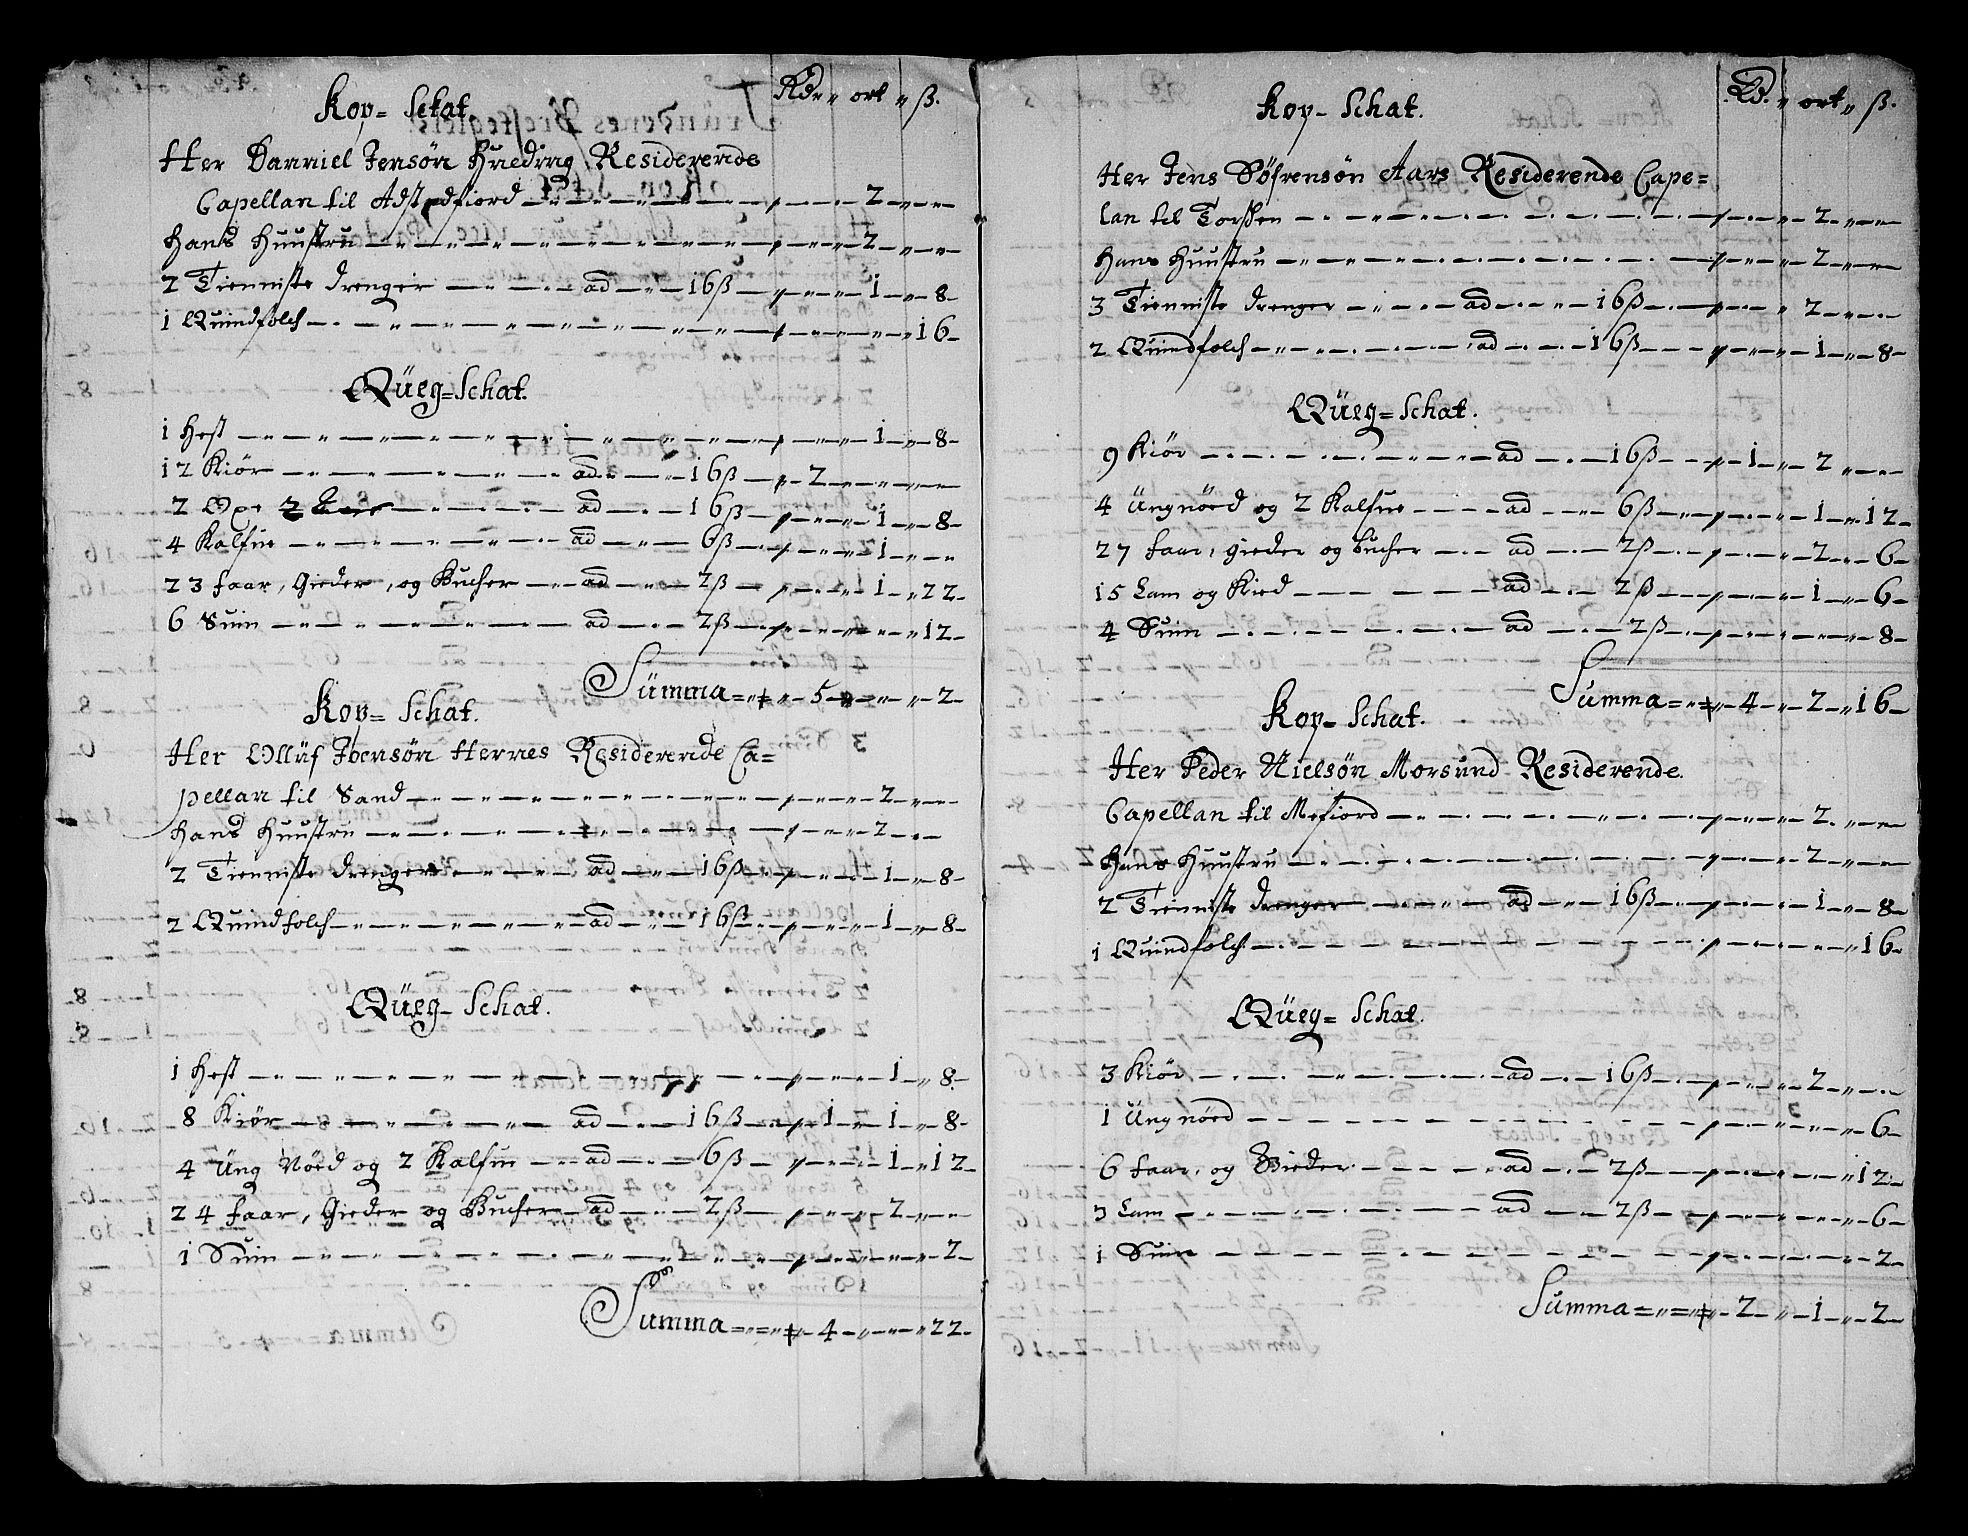 Rd " ort " ß.
Kop= Schat.
Her Danniel Jensøn Hueding Residerende
Capellan til Adstedfiord 2
Hans Huustru 2
2 Tienniste drenger ad 16ß 1 8
1 Quindfolch 16
Qüeg=Schat.
1 Hest 1 8
12 Kiör ad 16ß 2
2 Oxe ad 16ß 1 8
4 Kalfue ad 6ß 1
23 faar, Gieder, og Bucher ad 2ß 1 22
6 Suin ad 2ß 12
Sümma 5 2
Kop= Schat.
Her Ollüf Ibensøn Hernes Residerende Ca=
pellan til Sand 2
Hans Huustru 2
2 Tienniste drenger ad 16ß 1 8
2 Quindfolch ad 16ß 1 8
Qüeg= Schat.
1 Hest 1 8
8 Kiör ad 16ß 1 1 8
4 Üng Nöed og 2 Kalfue ad 6ß 1 12
24 faar, Gieder og Bucher ad 2ß 2
1 Suin 2
Summa 4 22
Rd. " ort " ß.
Kop= Schat.
Her Jens Söfrensøn Aars Residerende Cape=
lan til Torsken 2
Hans Huustru 2
3 Tienniste drenger ad 16ß 2
2 Quindfolch ad 16ß 1 8
Qüeg= Schat.
9 Kiör ad 16ß 1 2
4 Üngnöed og 2 Kalfue ad 6ß 1 12
27 faar, gieder og bucher ad 2ß 2 6
15 Lam og Kied ad 2ß 1 6
4 Suin ad 2ß 8
Summa 4 2 16
Kop= Schat.
Her Peder Nielsøn Morsund Residerende
Capellan til Mefiord 2
Hans Huustru 2
2 Tienniste drenger ad 16ß 1 8
1 Quindfolch 16
Qüeg= Schat.
3 Kiör ad 16ß 2
1 Üngnöed 6
6 faar, og Gieder ad 2ß 12
3 Lam ad 2ß 6
1 Suin 2
Summa 2 1 2